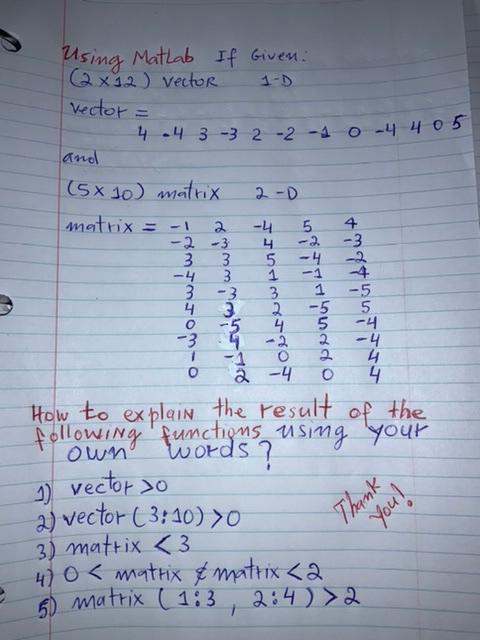 Using Matlab If Given:
(2x12) vector 1-D
vector =
4 -4 3 -3 2 -2 -1 0 -4 4 0 5
and
(5x10) matrix 2-D
matrix = -1 2 -4 5 4
-2 -3 4 -2 -3
3 3 5 -4 -2
-4 3 1 -1 -4
3 -3 3 1 -5
4 3 2 -5 5
0 -5 4 5 -4
-3 4 -2 2 -4
1 -1 0 2 4
0 2 -4 0 4
How to explain the result of the
following functions using your
own words?
1) vector >0
2) vector (3:10) >0
3) matrix < 3
4) 0 < matrix & matrix < 2
5) matrix (1:3 , 2:4) > 2
Thank
You!